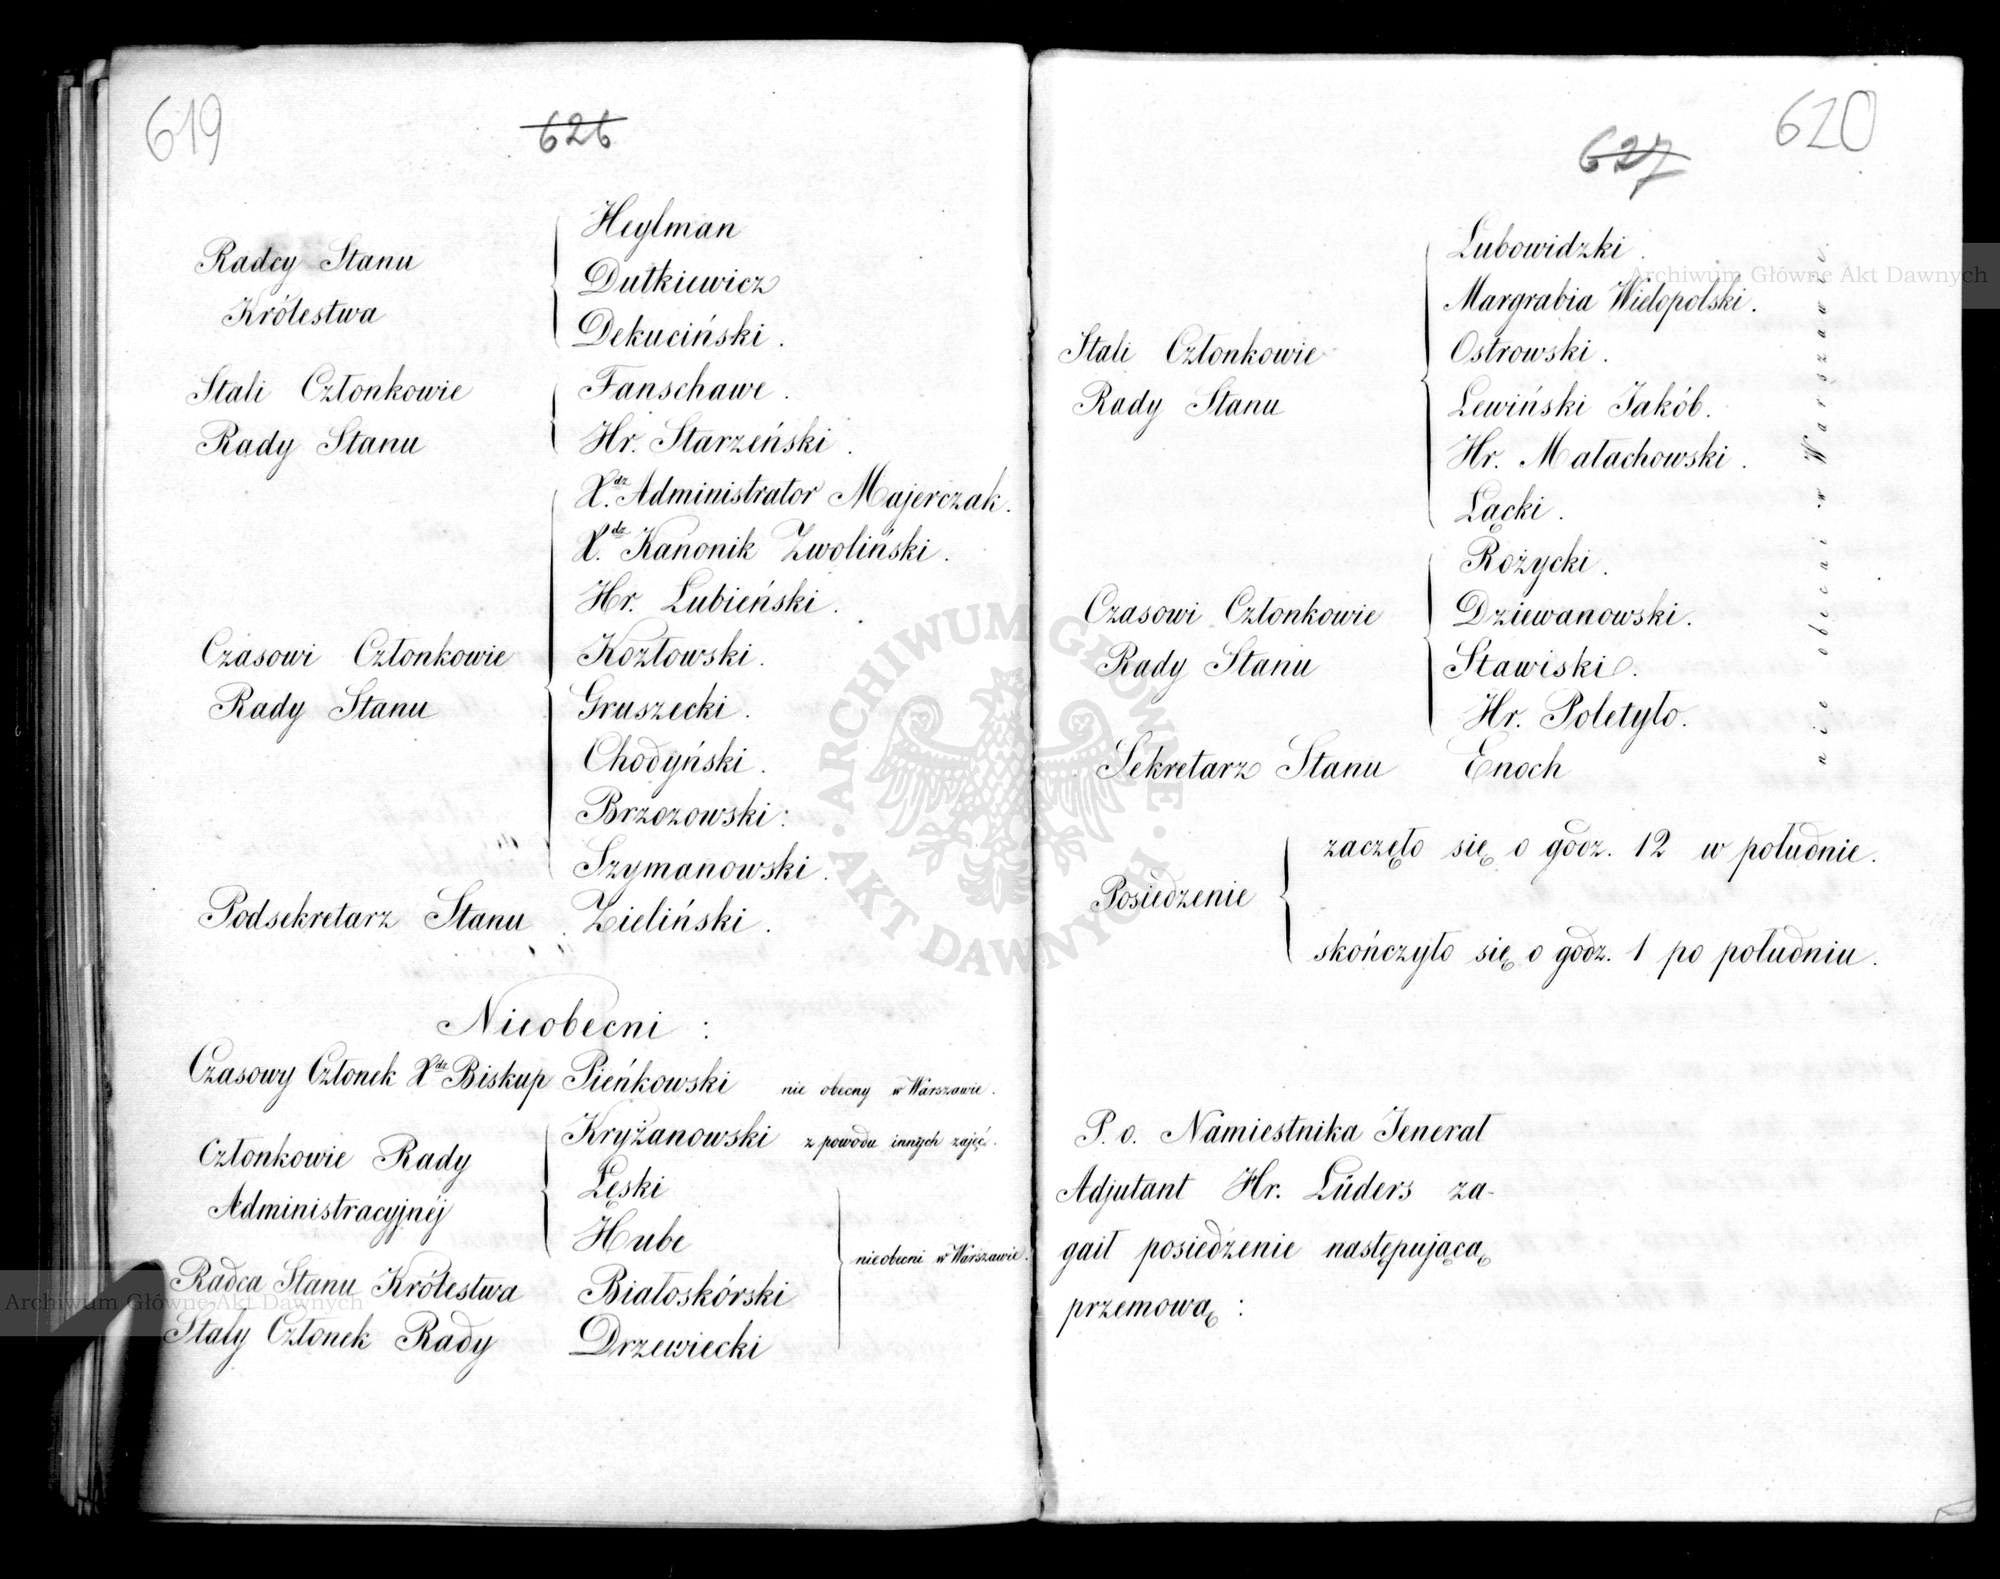 619
626
Radcy Stanu
Królestwa
Heylman
Dutkiewicz
Dekuciński.
Stali Członkowie
Rady Stanu
Fanschawe.
Hr. Starzeński.
X.dz Administrator Majerczak.
X.dz Kanonik Zwoliński.
Hr. Łubieński.
Czasowi Członkowie
Rady Stanu
Kozłowski.
Gruszecki.
Chodyński.
Brzozowski:
Szymanowski.
Podsekretarz Stanu Zieliński.
Nieobecni:
Czasowy Członek X.dz Biskup Pieńkowski nie obecny w Warszawie.
Członkowie Rady
Administracyjnéj
Kryżanowski z powodu innych zajęć.
Łęski
Hube
Radca Stanu Królestwa Białoskórski
Stały Członek Rady Drzewiecki
nieobecni w Warszawie.
620
627
Stali Członkowie
Rady Stanu
Lubowidzki.
Margrabia Wielopolski.
Ostrowski.
Lewiński Jakób.
Hr. Małachowski.
Łącki.
Czasowi Członkowie
Rady Stanu
Rożycki.
Dziewanowski.
Stawiski.
Hr. Poletyło.
Sekretarz Stanu Enoch
nie obecni w Warszawie.
Posiedzenie
zaczęło się o godz. 12 w południe.
skończyło się o godz. 1 po południu.
P. o. Namiestnika Jenerał
Adjutant Hr. Lüders za-
gaił posiedzenie następującą
przemową:
Archiwum Główne Akt Dawnych
Archiwum Główne Akt Dawnych
ARCHIWUM GŁÓWNE · AKT DAWNYCH ·